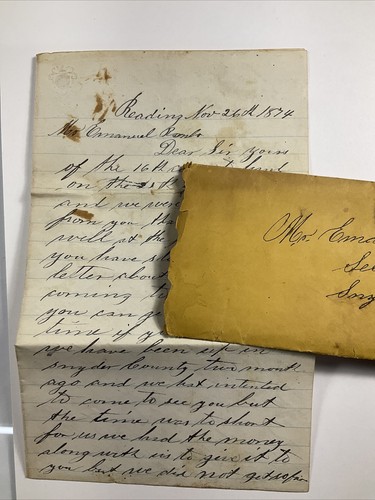 Reading Nov 26th 1874
Mr Emanuel
Dear Sir yours
of the 16th
on the
and we wer
from you th
well at the
you have st
letter about
coming t
you can g
time if y
we have been up in
snyder County two month
ago and we hat intented
to come to see you but
the time was to short
for us we had the money
along with us to give it to
you but we did not get
Mr. Ema
Se
Sny